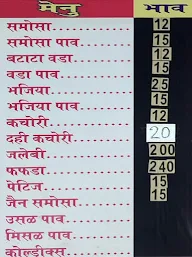 मेनु भाव
समोसा 12
समोसा पाव 15
बटाटा वडा 12
वडा पाव 15
भजिया 25
भजिया पाव 15
कचोरी 12
दही कचोरी 20
जलेबी 200
फफडा 240
पेटिज 15
जैन समोसा 15
उसळ पाव
मिसळ पाव
कोल्डींक्स